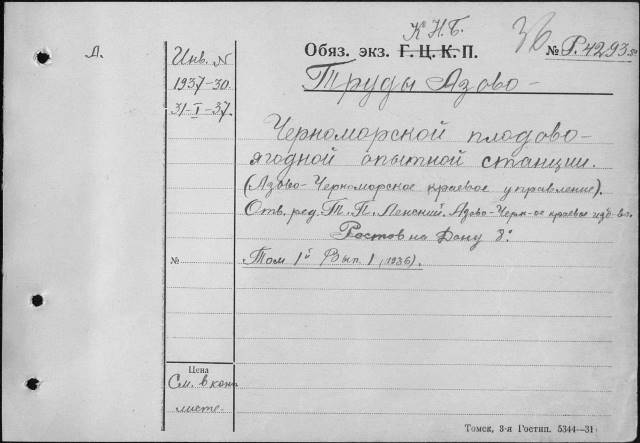 К.Н.Б.
Д.
Инв. N
1937-30.
31-I-37.
Обяз. экз. Г.Ц.К.П.
36
№ Р.4293
Труды Азово-
Черноморской плодово-
ягодной опытной станции.
(Азово-Черноморское краевое управление).
Отв. ред. Т. П. Ленский. Азово-Черн-ое краевое изд-во.
Ростов на Дону 8°
№
Том 1й Вып. 1 (1936).
Цена
См. в конт.
листе.
Томск, 3-я Гостип. 5344—31